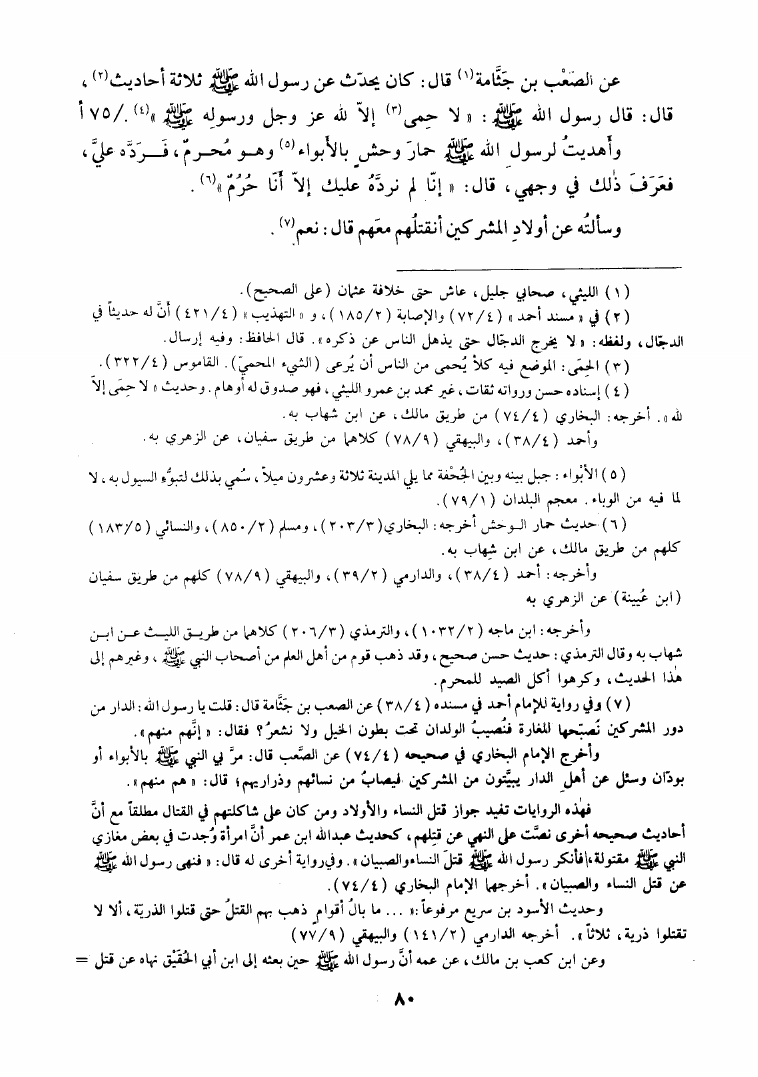 عن الصَعْب بن جَثَّامة(١) قال: كان يحدّث عن رسول الله ﷺ ثلاثة أحاديث(٢)،
قال: قال رسول الله ﷺ: «لا حِمى(٣) إلاّ لله عز وجل ورسولِه ﷺ»(٤)./٧٥ أ
وأهديتُ لرسولِ الله ﷺ حمارَ وحشٍ بالأبواء(٥) وهو مُحرمٌ، فَردَّه عليَّ،
فعَرَفَ ذٰلك في وجهي، قال: «إنّا لم نردَّهُ عليك إلاّ أَنَّا حُرُمٌ»(٦).
وسألتُه عن أولادِ المشركين أنقتلُهم معَهم قال: نعم(٧).
(١) الليثي، صحابي جليل، عاش حتى خلافة عثمان (على الصحيح).
(٢) في «مسند أحمد» (٧٢/٤) والإصابة (١٨٥/٢)، و «التهذيب» (٤٢١/٤) أنَّ له حديثاً في
الدجّال، ولفظه: «لا يخرج الدجّال حتى يذهل الناس عن ذكره». قال الحافظ: وفيه إرسال.
(٣) الحِمَى: الموضع فيه كلأ يُحمى من الناس أن يُرعى (الشيء المحميّ). القاموس (٣٢٢/٤).
(٤) إسناده حسن ورواته ثقات، غير محمد بن عمرو الليثي، فهو صدوق له أوهام. وحديث «لا حِمَى إلاّ
لله». أخرجه: البخاري (٧٤/٤) من طريق مالك، عن ابن شهاب به.
وأحمد (٣٨/٤)، والبيهقي (٧٨/٩) كلاهما من طريق سفيان، عن الزهري به.
(٥) الأبْواء: جبل بينه وبين الجُحْفة مما يلي المدينة ثلاثة وعشرون ميلاً، سُمي بذلك لتبوُّء السيول به، لا
لما فيه من الوباء. معجم البلدان (٧٩/١).
(٦) حديث حمار الوحش أخرجه: البخاري (٢٠٣/٣)، ومسلم (٨٥٠/٢)، والنسائي (١٨٣/٥)
كلهم من طريق مالك، عن ابن شهاب به.
وأخرجه: أحمد (٣٨/٤)، والدارمي (٣٩/٢)، والبيهقي (٧٨/٩) كلهم من طريق سفيان
(ابن عُيينة) عن الزهري به
وأخرجه: ابن ماجه (١٠٣٢/٢)، والترمذي (٢٠٦/٣) كلاهما من طريق الليث عن ابن
شهاب به وقال الترمذي: حديث حسن صحيح، وقد ذهب قوم من أهل العلم من أصحاب النبي ﷺ، وغيرهم إلى
هٰذا الحديث، وكرهوا أكل الصيد للمحرم.
(٧) وفي رواية للإمام أحمد في مسنده (٣٨/٤) عن الصعب بن جَثَّامة قال: قلت يا رسول الله: الدار من
دور المشركين نُصبّحها للغارة فنُصيبُ الولدان تحت بطون الخيل ولا نشعرُ؟ فقال: «إنَّهم منهم».
وأخرج الإمام البخاري في صحيحه (٧٤/٤) عن الصَّعب قال: مرَّ بي النبي ﷺ بالأبواء أو
بودّان وسئل عن أهل الدار يبيَّتون من المشركين فيصابُ من نسائهم وذراريهم؛ قال: «هم منهم».
فهٰذه الروايات تفيد جواز قتل النساء والأولاد ومن كان على شاكلتهم في القتال مطلقاً مع أنَّ
أحاديث صحيحه أخرى نصَّت على النهي عن قتلهم، كحديث عبدالله ابن عمر أنَّ امرأة وُجدت في بعض مغازي
النبي ﷺ مقتولة، فأنكر رسول الله ﷺ قتلَ النساء والصبيان». وفي رواية أخرى له قال: «فنهى رسول الله ﷺ
عن قتل النساء والصبيان». أخرجها الإمام البخاري (٧٤/٤).
وحديث الأسود بن سريع مرفوعاً: «... ما بالُ أقوامٍ ذهب بهم القتلُ حتى قتلوا الذريّة، ألا لا
تقتلوا ذرية، ثلاثاً». أخرجه الدارمي (١٤١/٢) والبيهقي (٧٧/٩)
وعن ابن كعب بن مالك، عن عمه أنَّ رسول الله ﷺ حين بعثه إلى ابن أبي الحُقَيْق نهاه عن قتل =
٨٠